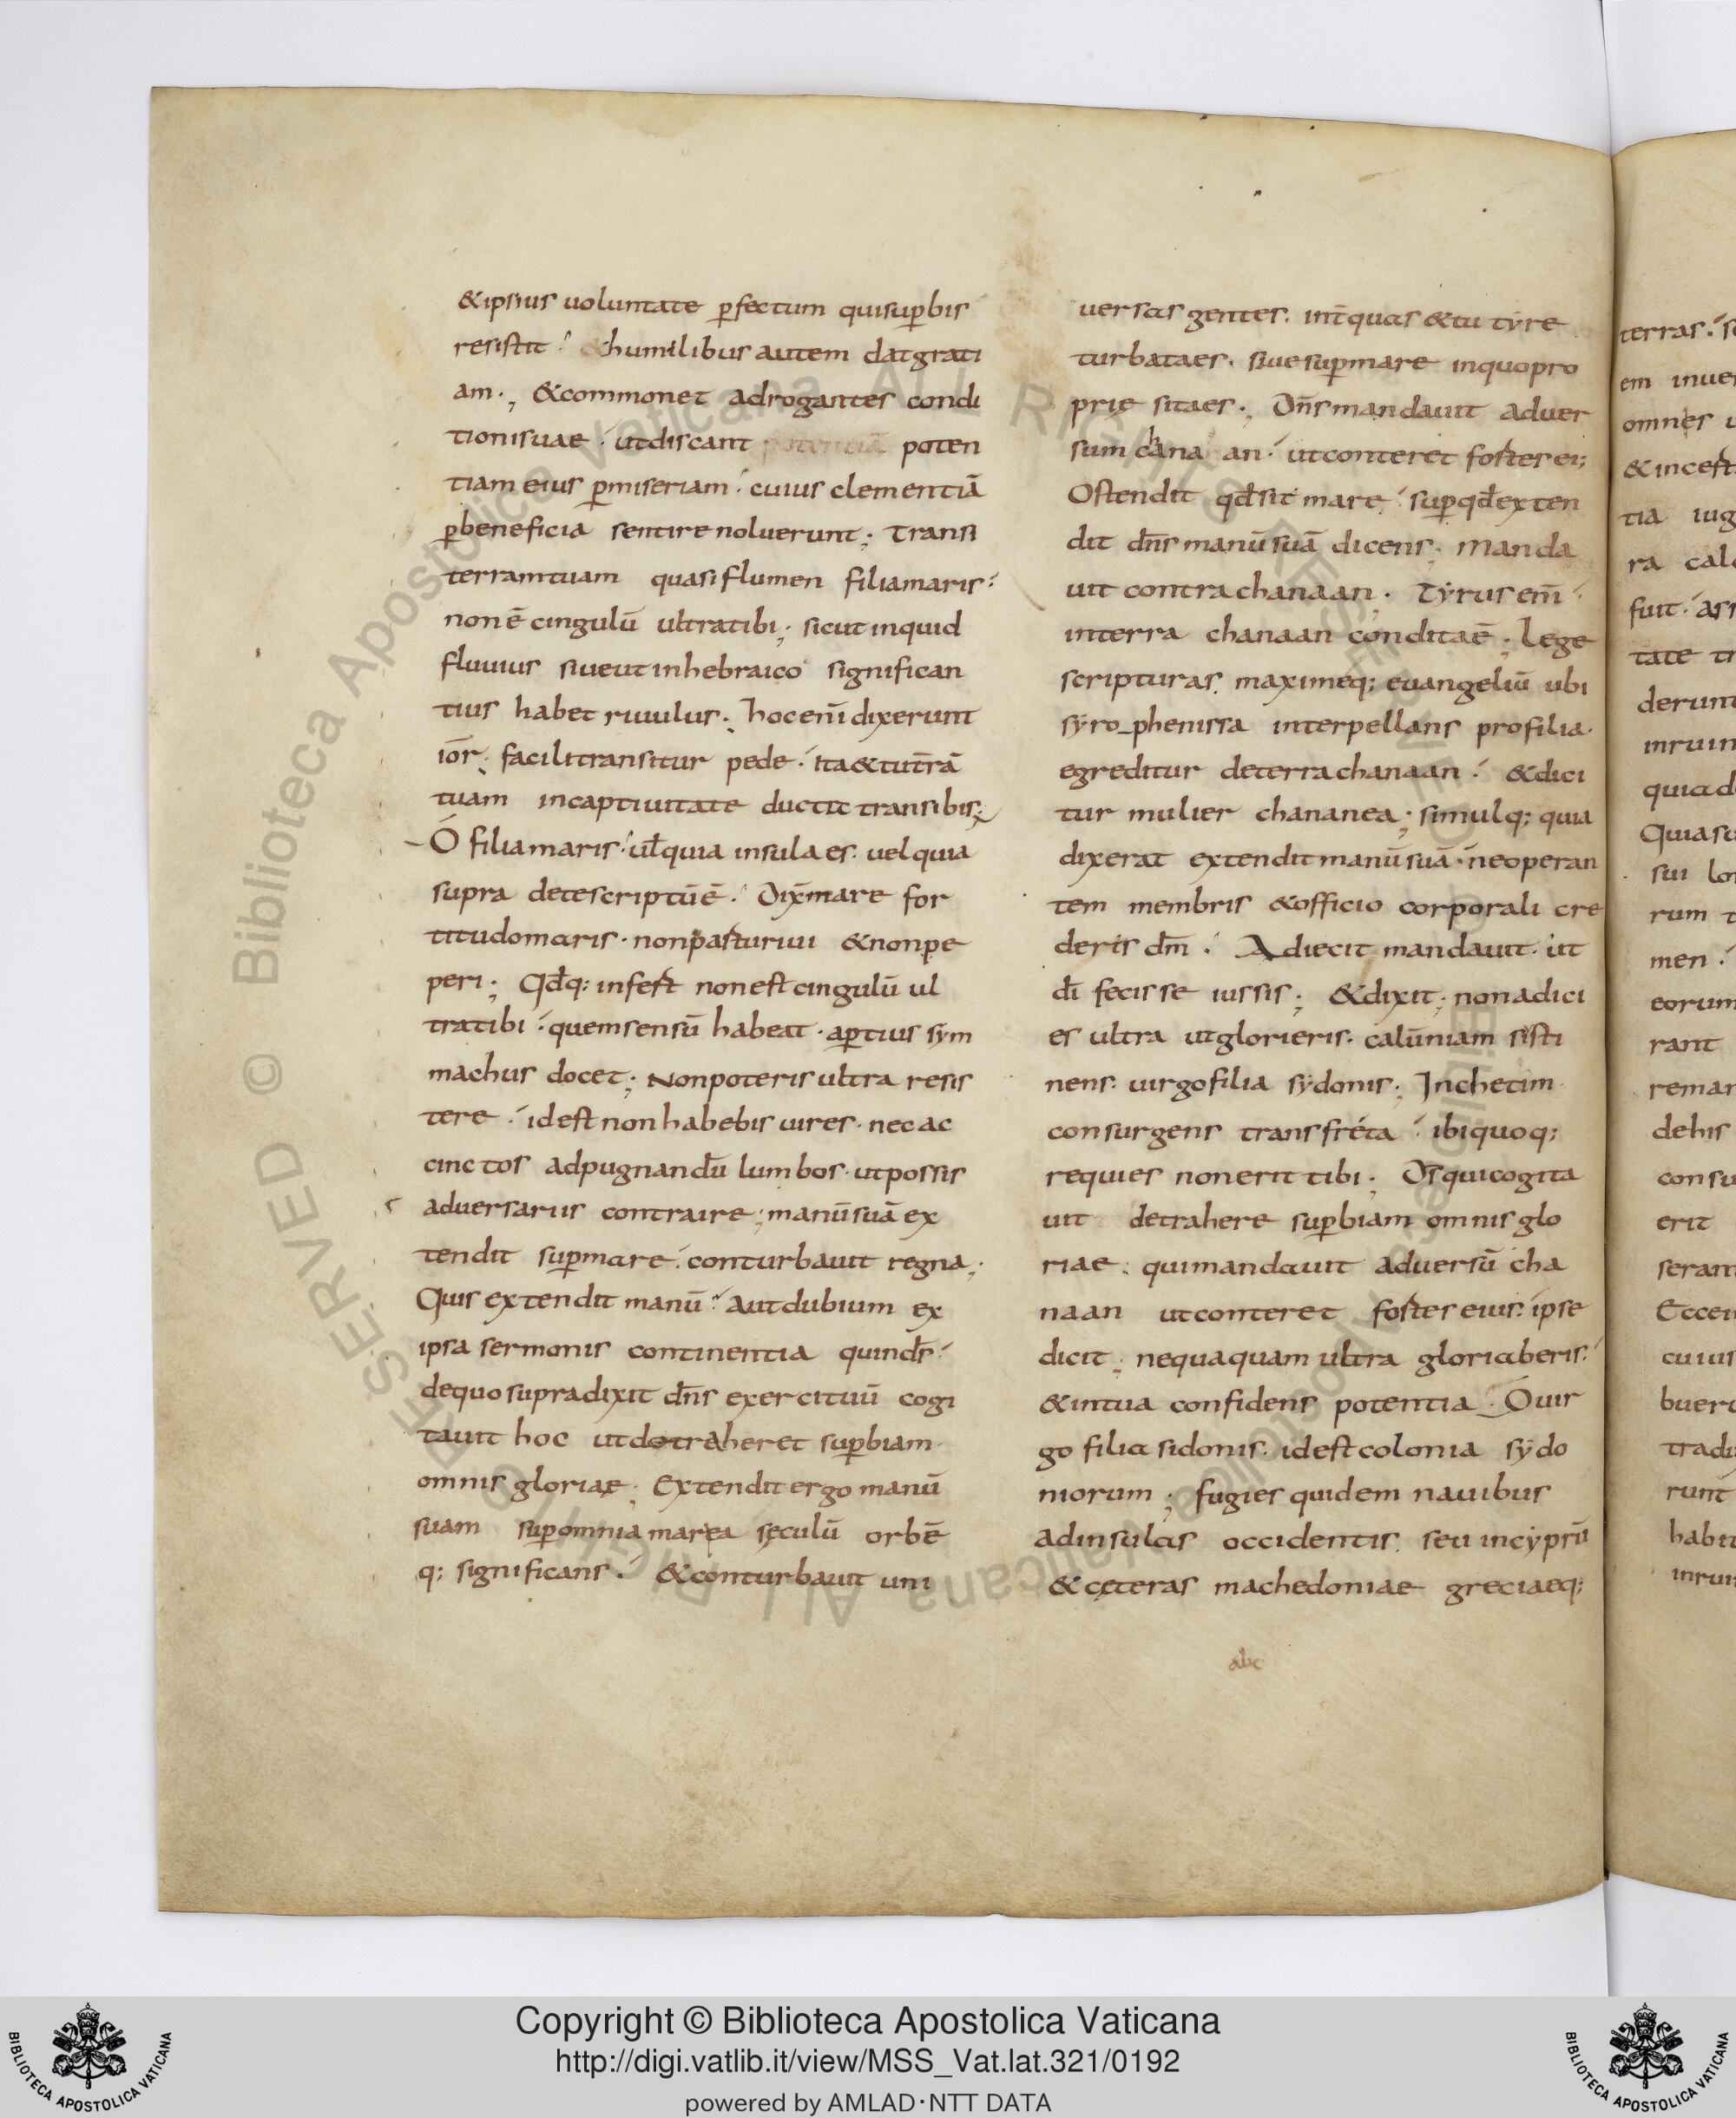 &ipsius uoluntate ꝑfectum quisuꝑbis
resistit · humilibus autem datgrati
am·, &commonet adrogantes condi
tionisuae · utdiscant poten
tiam eius ꝑmiseriam · cuius clementiā
ꝑbeneficia sentire noluerunt; Transi
terramtuam quasiflumen filiamaris ·
nonē cingulū ultratibi; sicut inquid
fluuius siueutinhebraico significan
tius habet riuulus; hocem̄ dixerunt
ior̄; facilitransitur pede · ita&tut̄rā
tuam incaptiuitate ductic transibis;
O filiamaris · ul̄quia insulaes · uelquia
supra detescriptūē · Dix̄mare for
titudomaris · nonparturiui &nonpe
peri; Qd̄q; infest nonestcingulū ul
tratibi · quemsensū habeat · aꝑtius sym
machus docet; Nonpoteris ultra resis
tere · idest nonhabebis uires · necac
cinctos adpugnandū lumbos · utpossis
aduersariis contraire; manūsuā ex
tendit suꝑmare · conturbauit regna;
Quis extendit manū · Autdubium ex
ipsa sermonis continentia quind̄s ·
dequosupradixit dn̄s exercituū cogi
tauit hoc utdetraheret suꝑbiam
omnis gloriae; Extendit ergo manū
suam suꝑomnia marea sęculū orbē
q; significans · &conturbauit uni
uersas gentes · int̄quas &tu tyre
turbataes · siuesuꝑmare inquopro
prie sitaes; Dn̄smandauit aduer
sum chanaan · utconteret fortesei;
Ostendit qd̄sit mare · suꝑqd̄exten
dit dn̄s manūsuā dicens; manda
uit contrachanaan · Tyrusem̄
interra chanaan conditaē; Lege
scripturas maximeq; euangeliū ubi
syrophenissa interpellans profilia ·
egreditur deterrachanaan · &dici
tur mulier chananea; simulq; quia
dixerat extenditmanūsuā · neoperan
tem membris &officio corporali cre
deris dm̄ · Adiecit mandauit · ut
di̅ fecisse iussis; &dixit; nonadici
es ultra utglorieris · calūniam susti
nens · uirgofilia sydonis; Inchetim
consurgens transfréta · ibiquoq;
requies nonerit tibi; Dsquicogita
uit detrahere suꝑbiam omnisglo
riae · quimandauit aduersū cha
naan utconteret forteseius · ipse
dicit; nequaquam ultra gloriaberis ·
&intua confidens potentia · Ouir
go filia sidonis · idestcolonia sydo
niorum; fugies quidem nauibus
adinsulas occidentis · seu incyprū
&cęteras machedoniae greciaeq;
abc
terras ·
em inue
omnes
&incest
tia iug
ra cal
fuit · ass
tate tr
derunt
inruin
quiad
Quiasu
sui lon
rum t
men ·
eorum
rant
reman
dehis
consu
erit
serant
Eccen
cuius
buer
tradi
runt
habit
inrui
© Biblioteca Apostolica Vaticana ALL RIGHTS RESERVED © Biblioteca Apostolica Vaticana ALL RIGHTS RESERVED
BIBLIOTECA APOSTOLICA VATICANA
Copyright © Biblioteca Apostolica Vaticana
http://digi.vatlib.it/view/MSS_Vat.lat.321/0192
powered by AMLAD·NTT DATA
BIBLIOTECA APOSTOLICA VATICANA